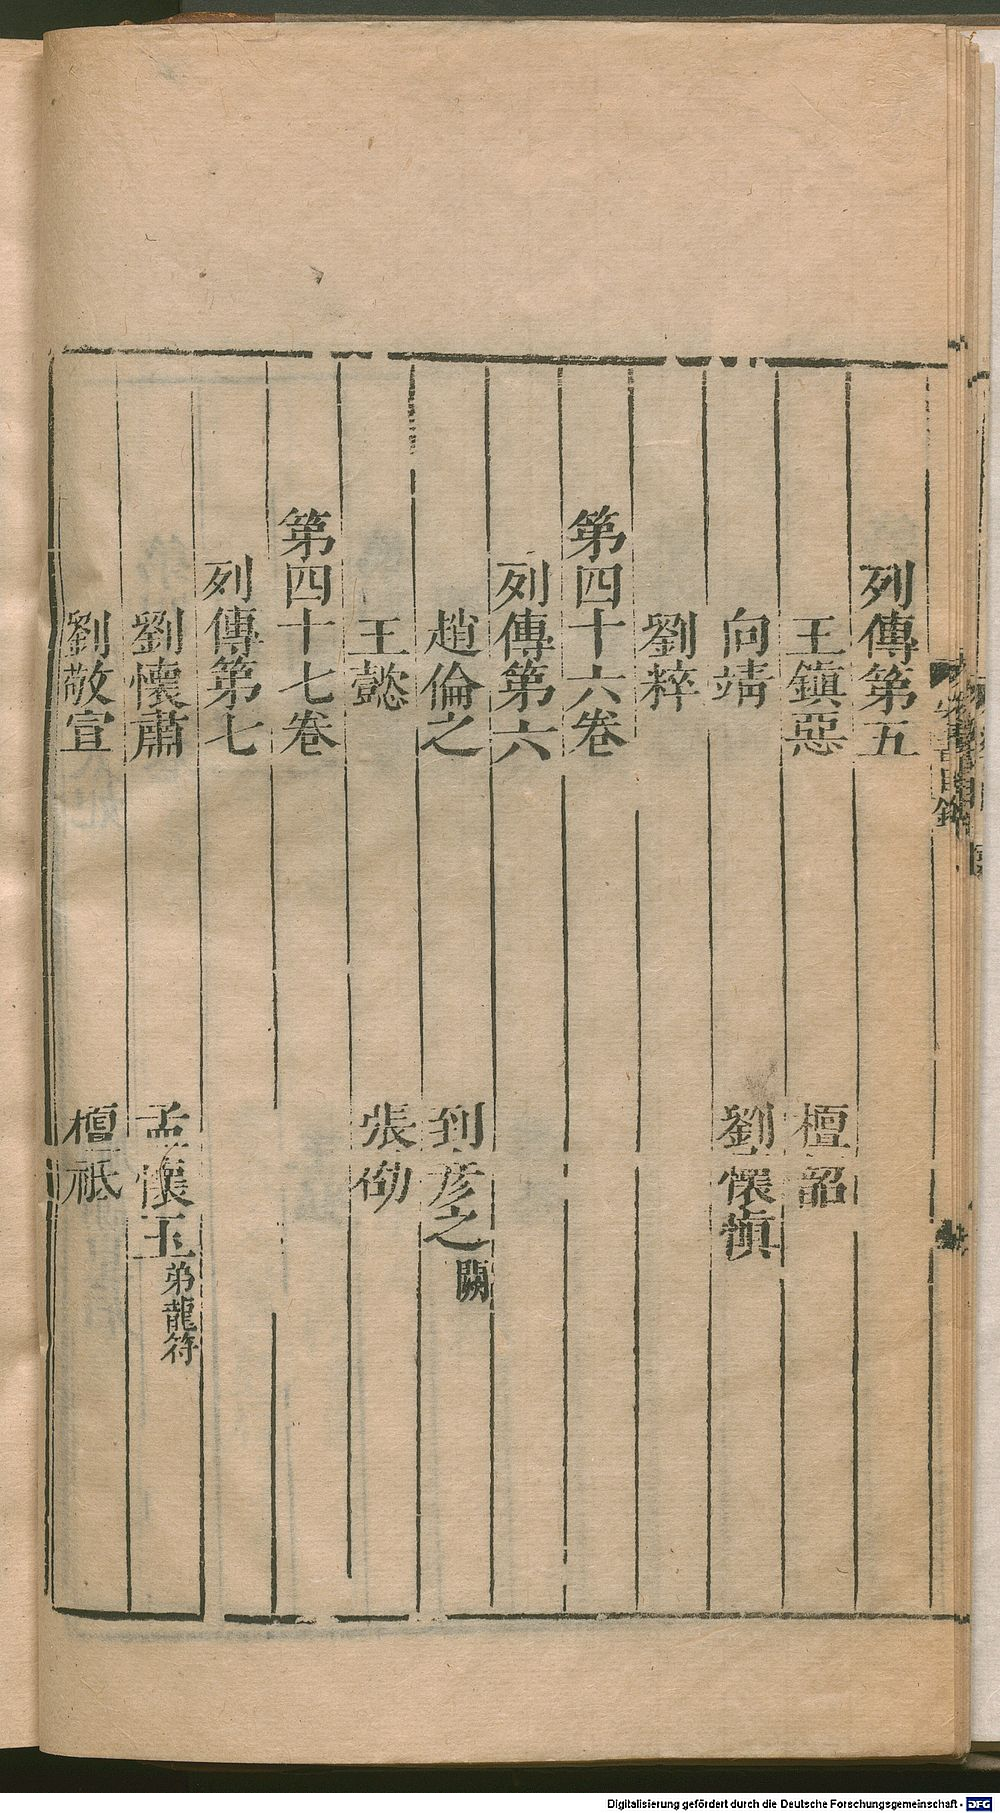 列傳第五
王鎭惡　檀韶
向靖　劉懷愼
劉粹
第四十六卷
列傳第六
趙倫之　到彥之闕
王懿　張劭
第四十七卷
列傳第七
劉懷肅　孟懷玉弟龍符
劉敬宣　檀祗
Digitalisierung gefördert durch die Deutsche Forschungsgemeinschaft - DFG